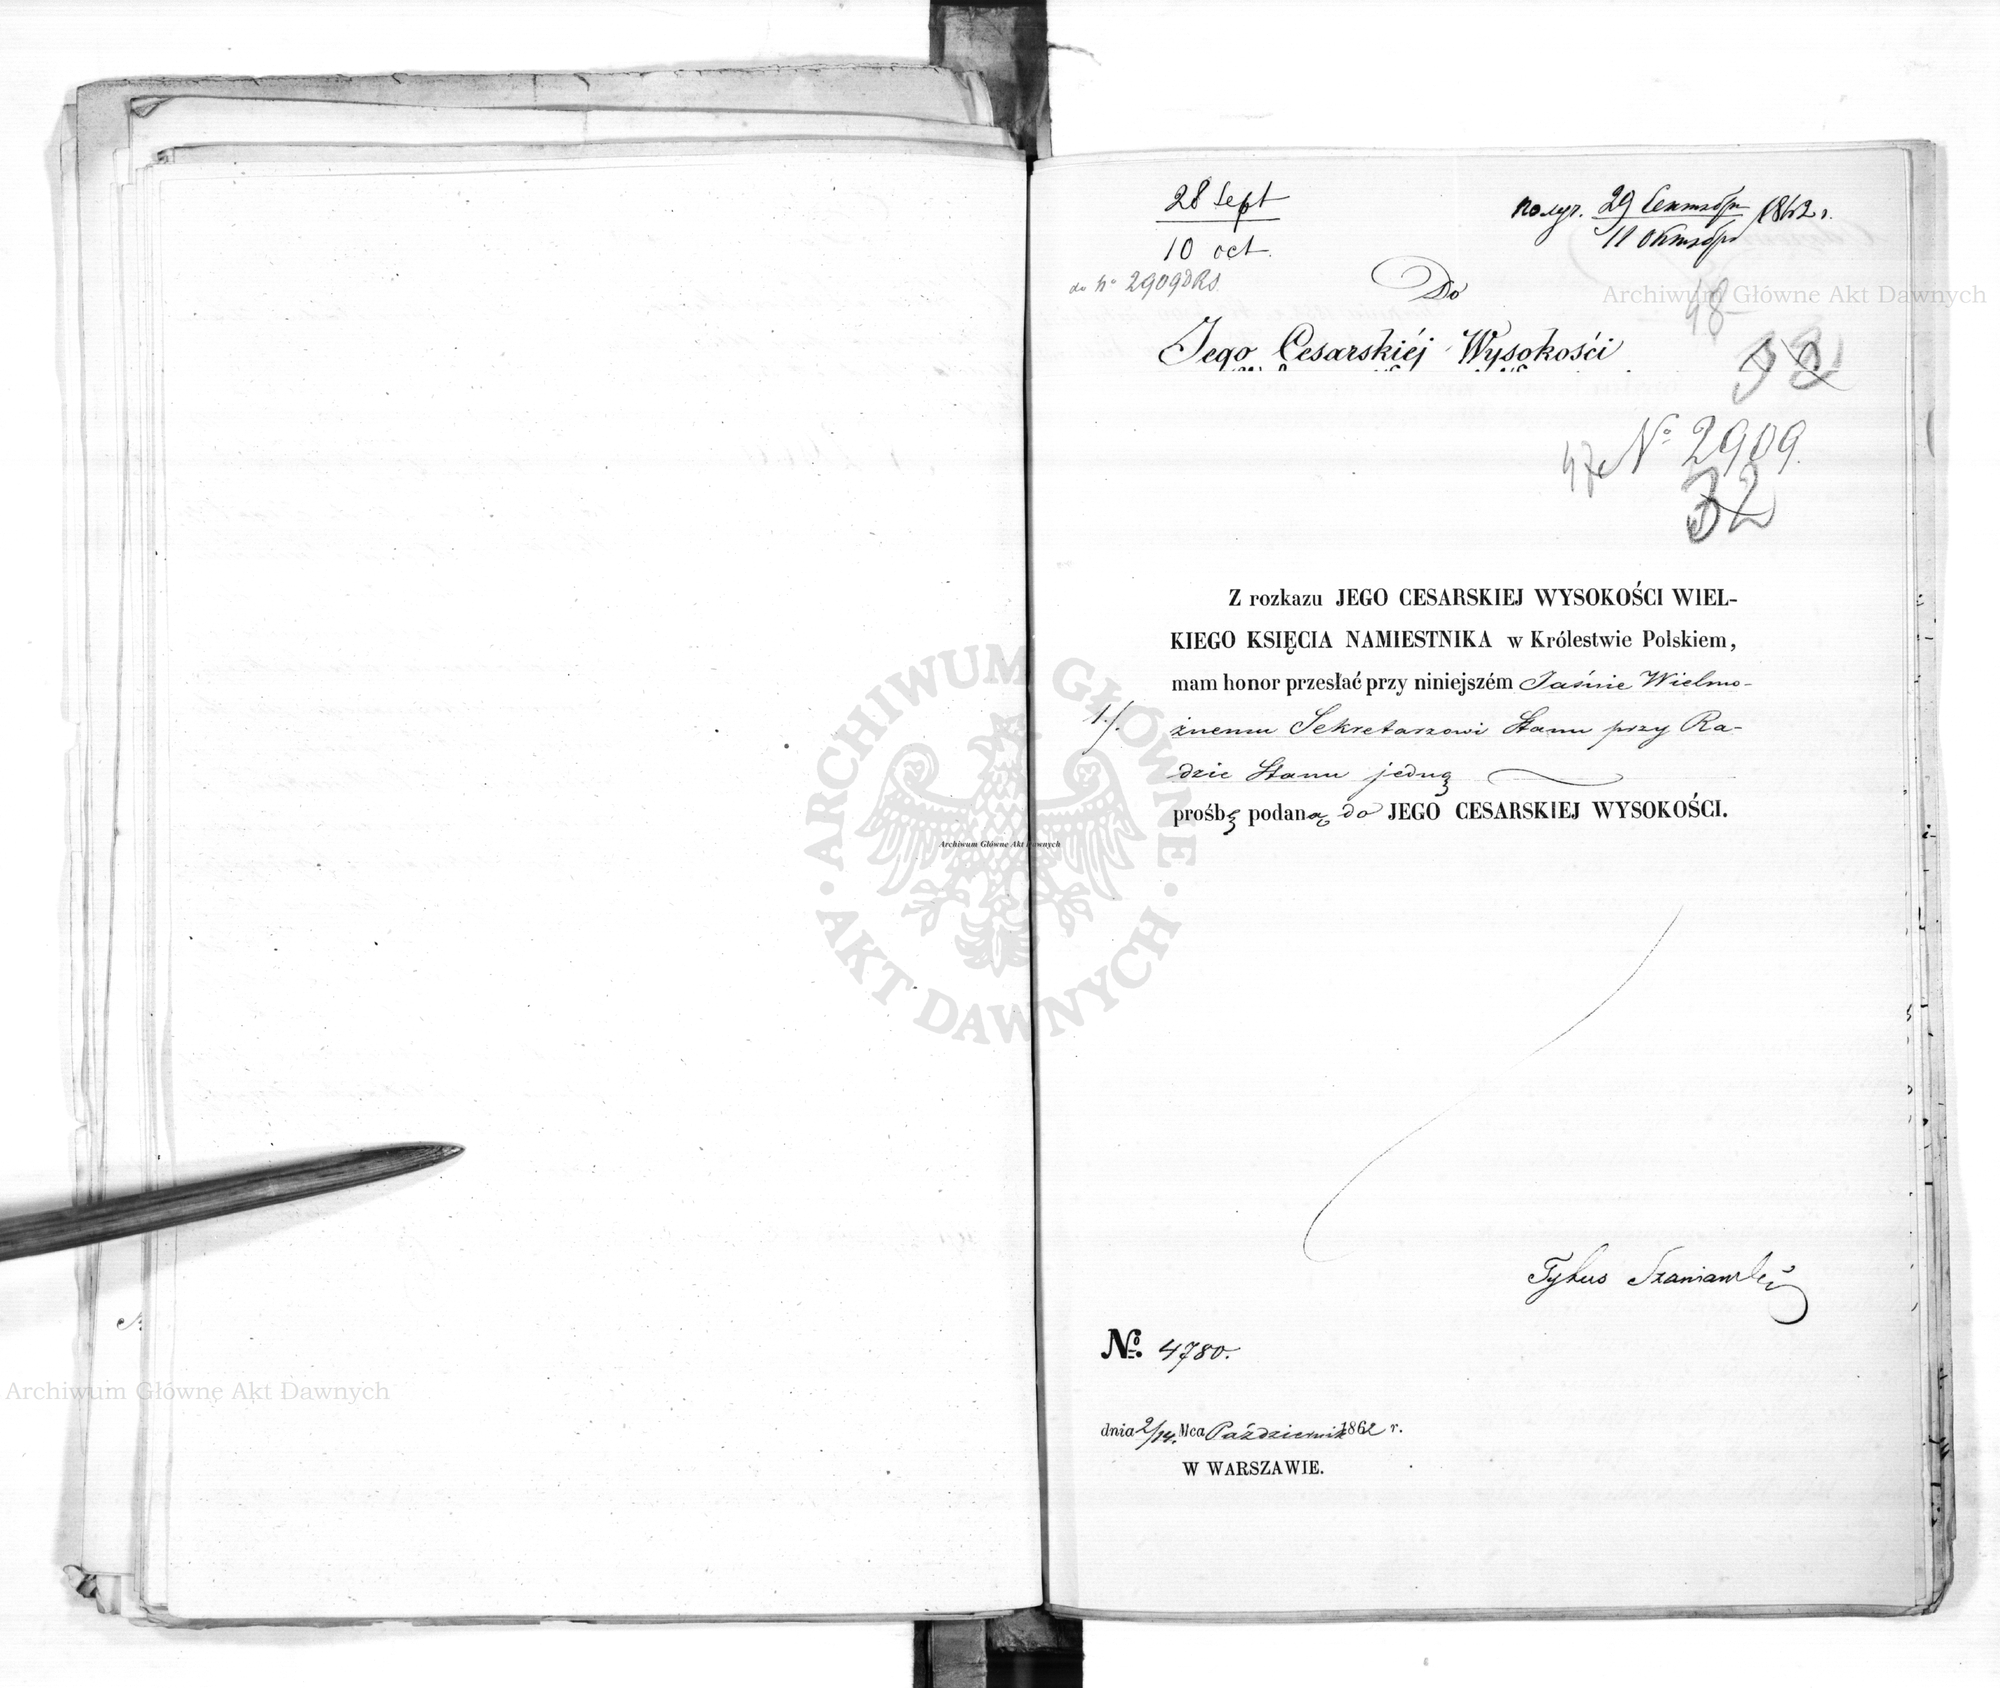 28 Sept
10 oct.
до № 2909
получ. 29 Сентября 1862 г.
11 октября
Do
Jego Cesarskiéj Wysokości
48
32
47 № 2909.
32
Z rozkazu JEGO CESARSKIEJ WYSOKOŚCI WIEL-
KIEGO KSIĘCIA NAMIESTNIKA w Królestwie Polskiem,
mam honor przesłać przy niniejszém Jaśnie Wielmo-
1./.
żnemu Sekretarzowi Stanu przy Ra-
dzie Stanu jedną
prośbę podaną do JEGO CESARSKIEJ WYSOKOŚCI.
Tytus Szaniawski
№. 4780.
dnia 2/14. Mca Październik 1862 r.
W WARSZAWIE.
Archiwum Główne Akt Dawnych
ARCHIWUM GŁÓWNE · AKT DAWNYCH ·
Archiwum Główne Akt Dawnych
Archiwum Główne Akt Dawnych